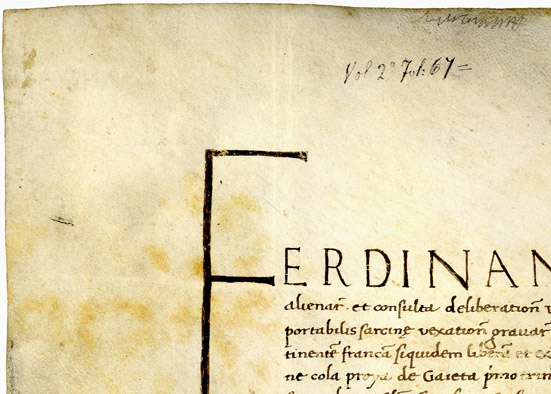 Vol 2º Fol: 67 =
FERDINAN
alienar̄ et consulta deliberation̄
portabilis sarcine vexation̄ gravar
tinente francā siquidem liberā et ex
ne cola proya de Gaieta pⁱmo